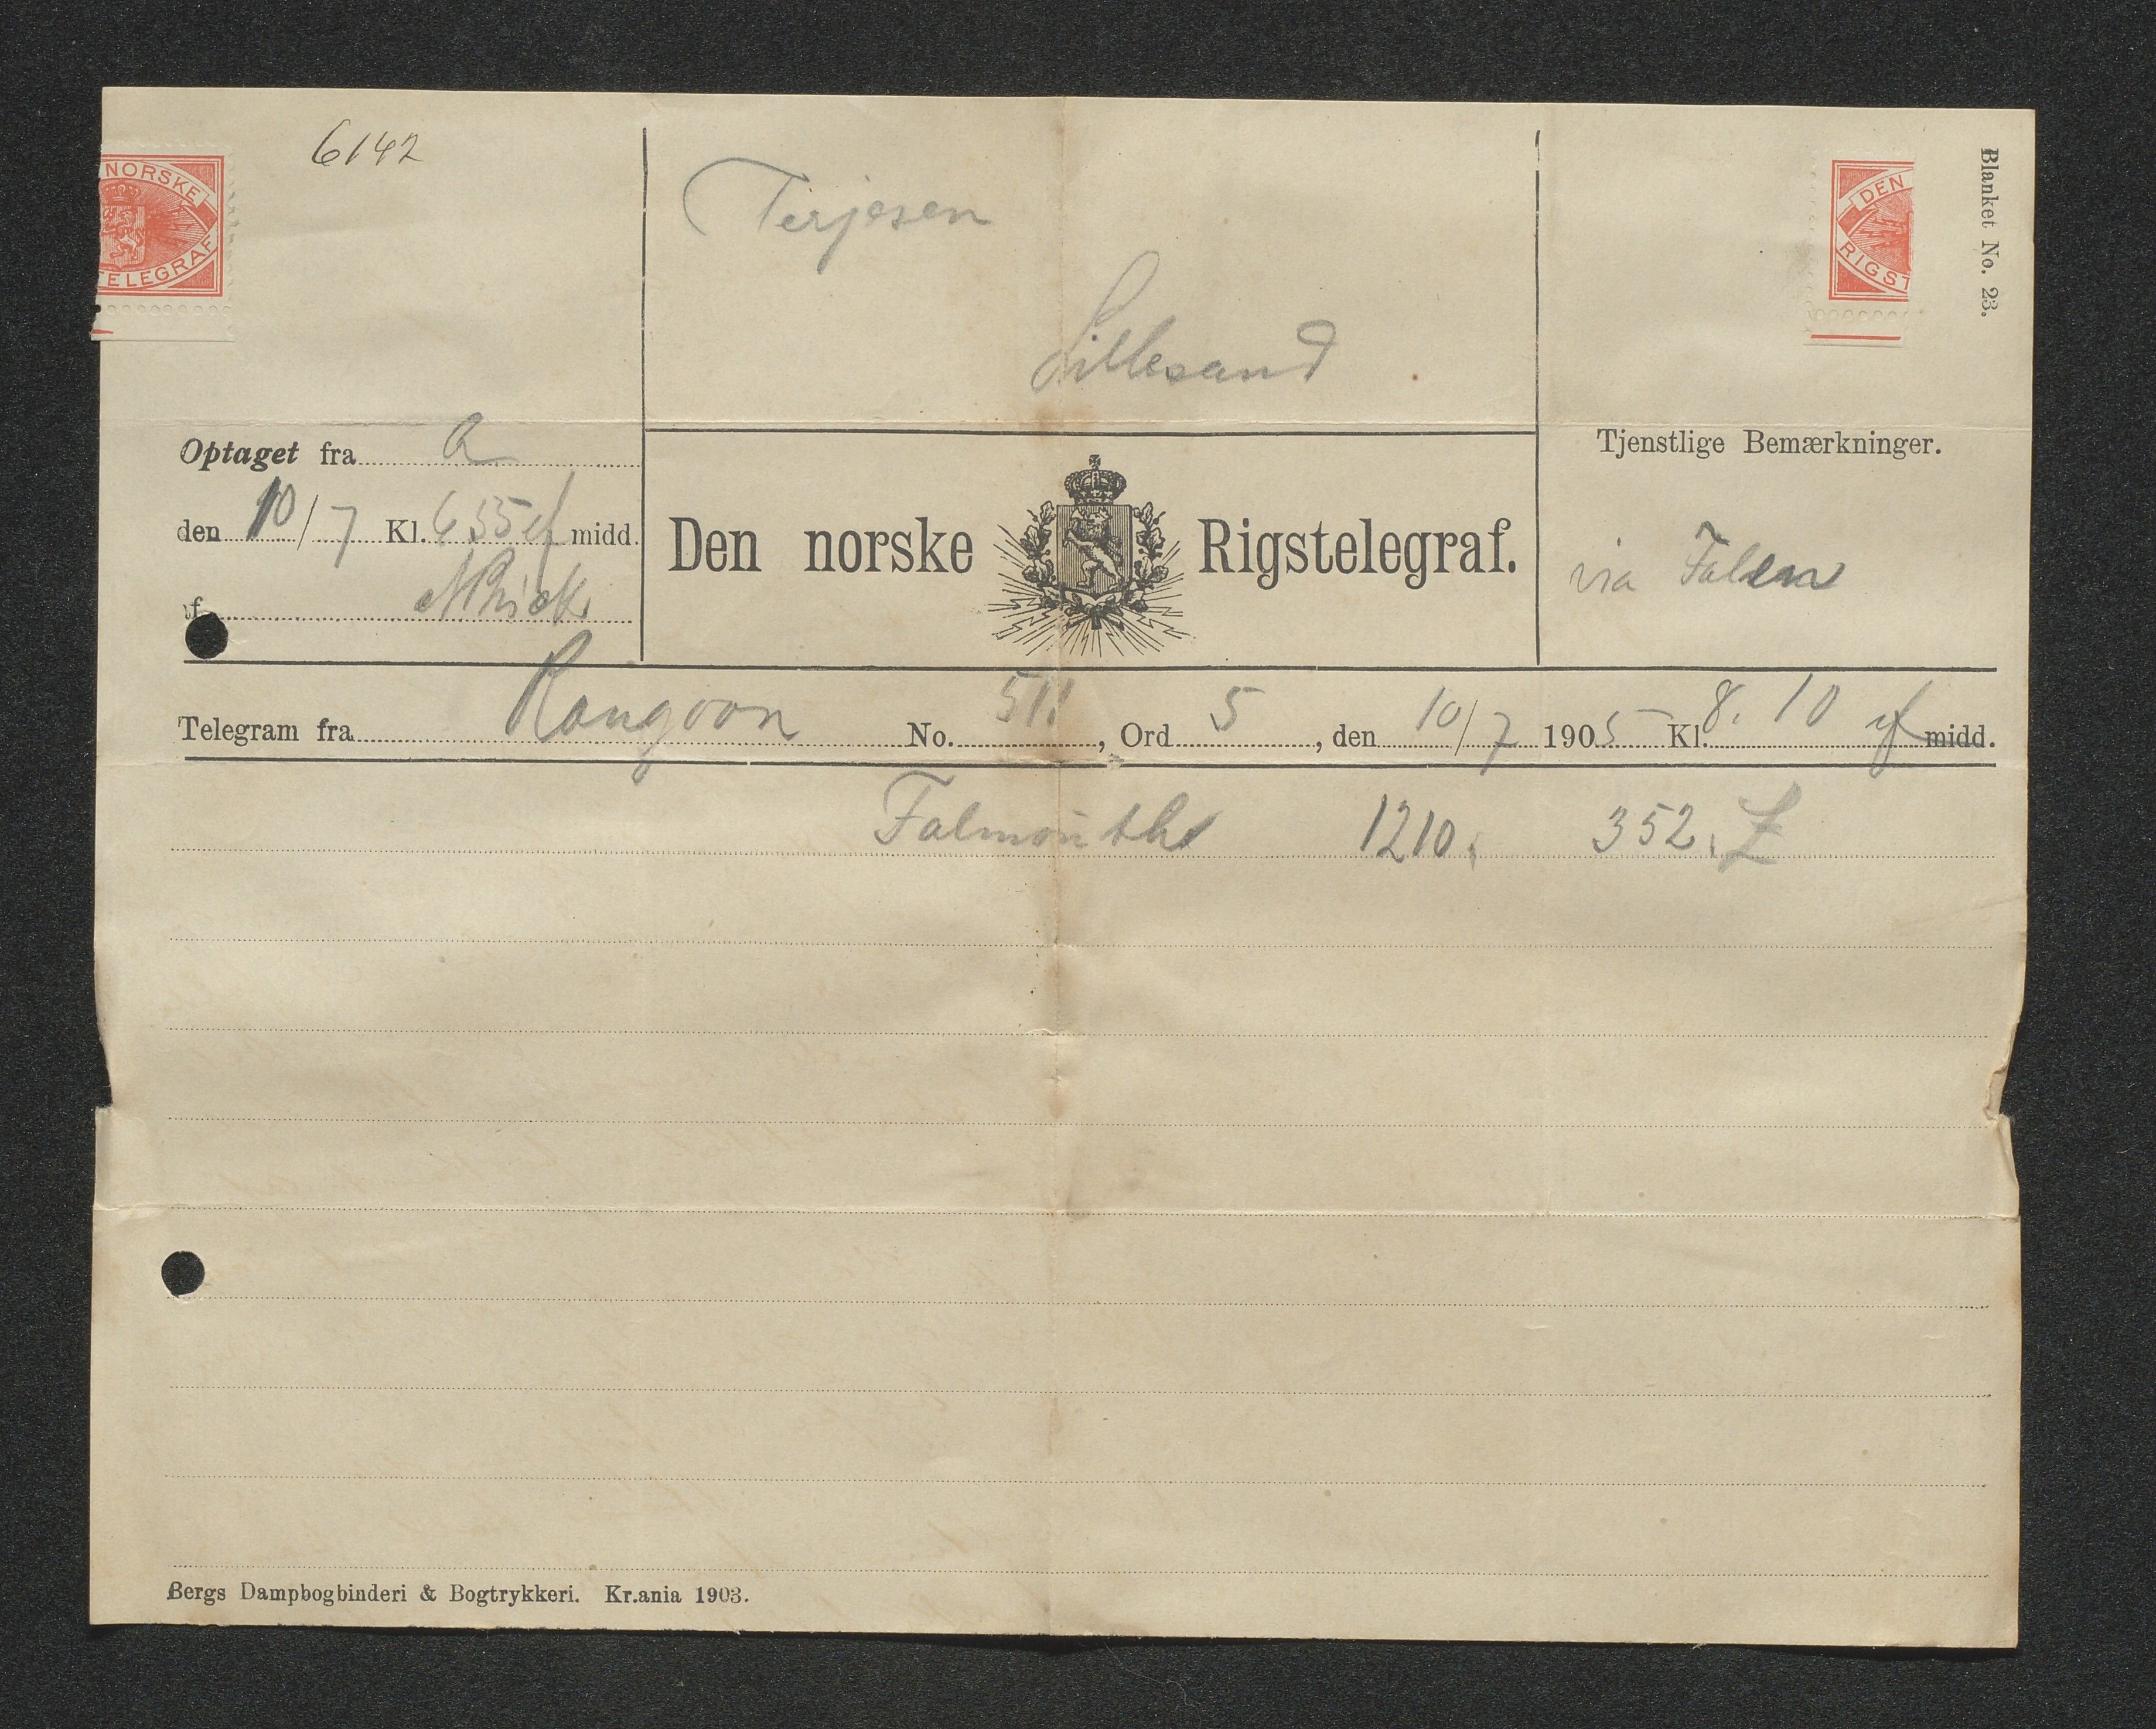 6142
NORSKE
TELEGRAF
Terjesen
Lillesand
DEN
RIGST
Blanket No. 23.
Optaget fra a
den 10/7 Kl. 6 55 ef midd.
af
Den norske Rigstelegraf.
Tjenstlige Bemærkninger.
via Falen
Telegram fra Rangoon No. 511, Ord 5, den 10/7 1905 Kl. 8. 10 ef midd.
Falmouths 1210. 352.
Bergs Dampbogbinderi & Bogtrykkeri. Kr.ania 1903.